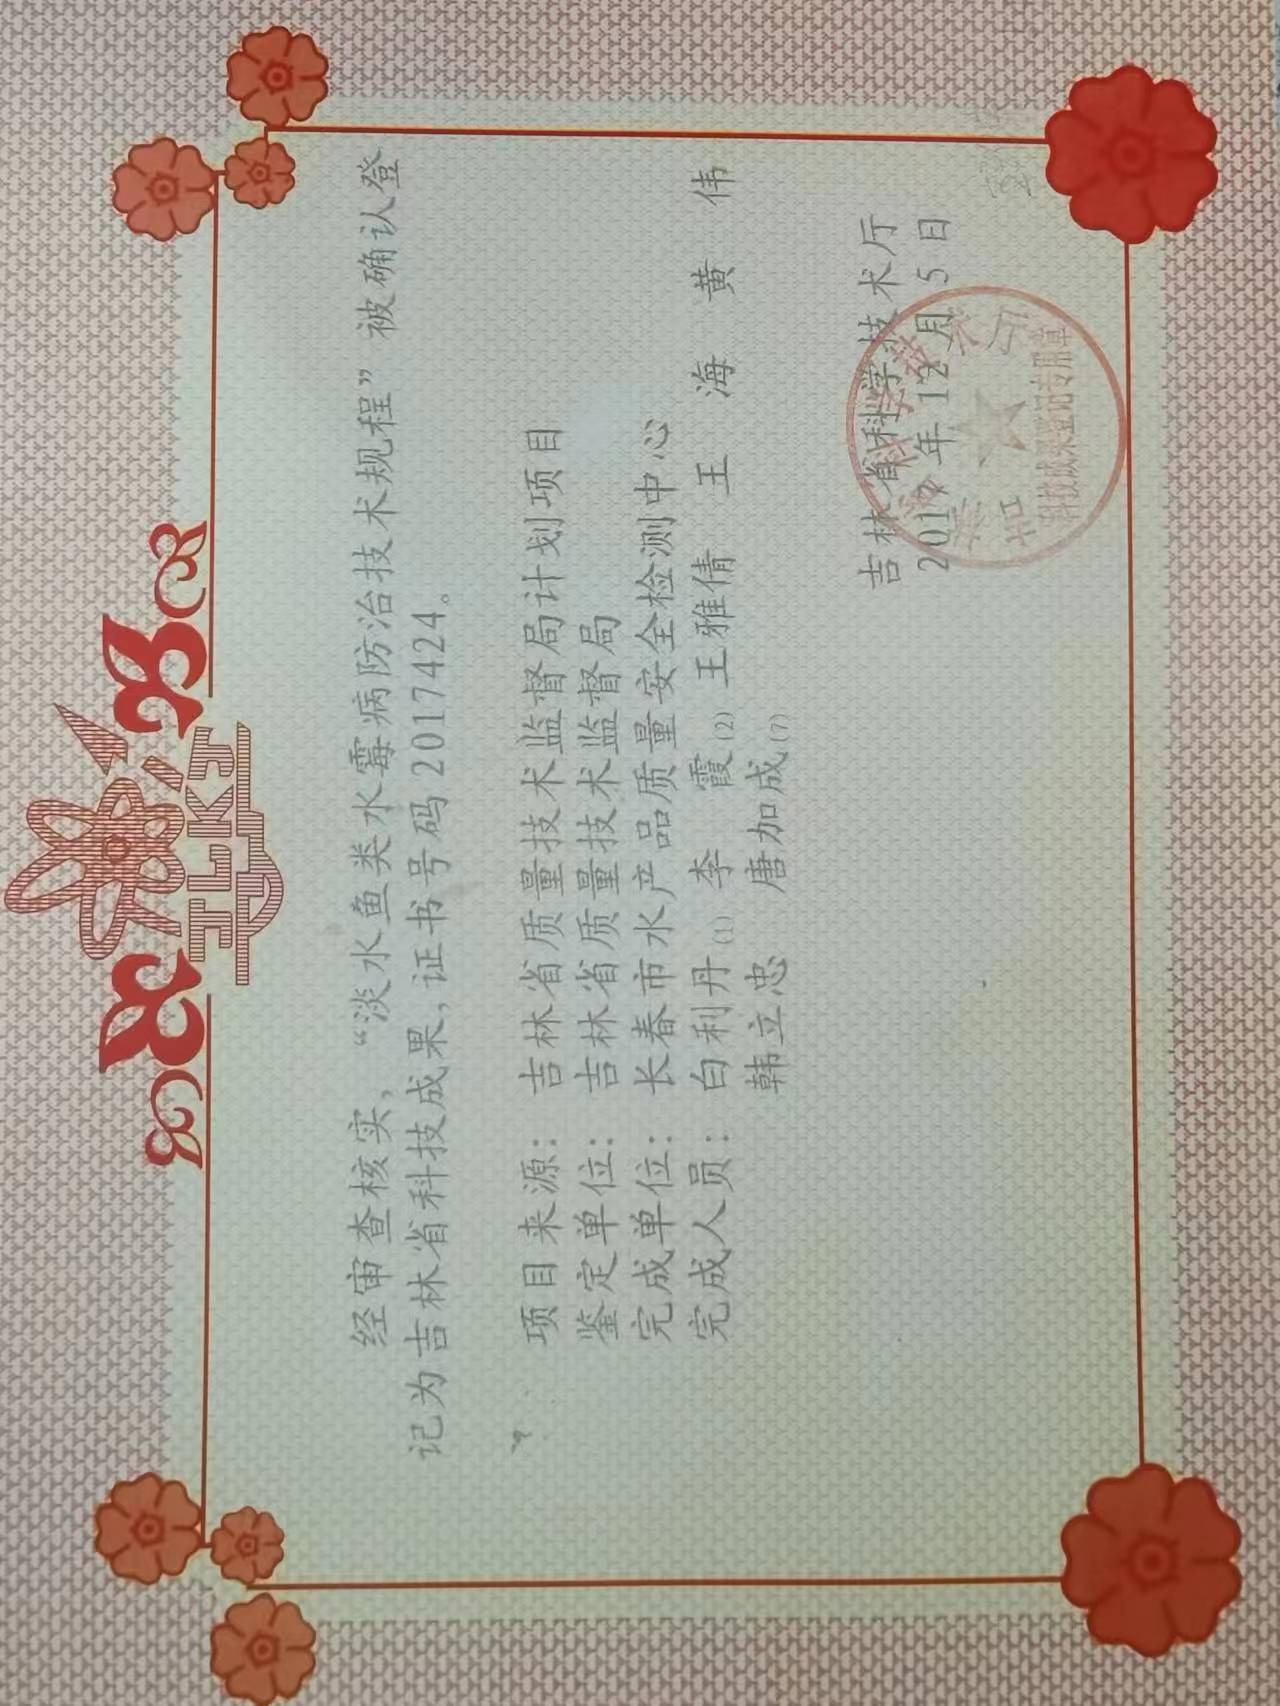 JLKJ
经审查核实，“淡水鱼类水霉病防治技术规程”被确认登
记为吉林省科技成果，证书号码2017424。
项目来源：吉林省质量技术监督局计划项目
鉴定单位：吉林省质量技术监督局
完成单位：长春市水产品质量安全检测中心
完成人员：白利丹(1) 李 霞(2) 王雅倩 王 海 黄 伟
韩立忠 唐加成(7)
吉林省科学技术厅
2017年12月5日
科技成果登记专用章